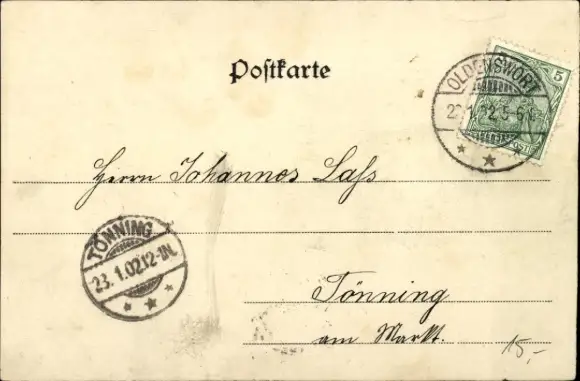 Postkarte
5
OLDENSWORT
5-6N
Herrn Johannes Lass
TÖNNING
23.1.02.12-1N.
Tönning
am Markt.
15,-